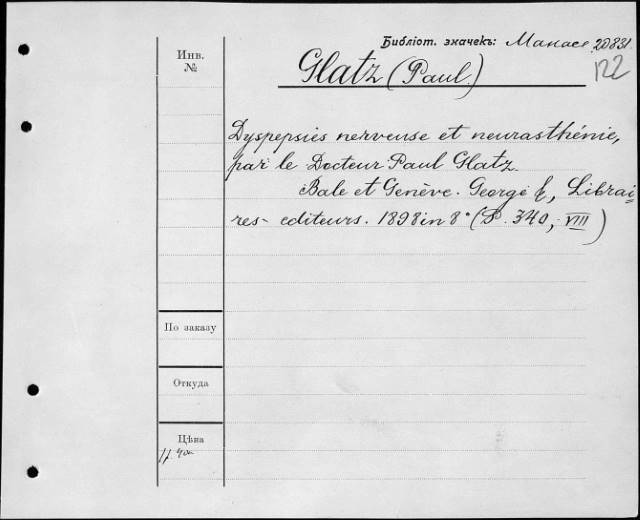 Библіот. значекъ: Манасе 20831
122
Инв.
№
Glatz (Paul.)
Dyspepsies nerveuse et neurasthénie,
par le Docteur Paul Glatz.
Bale et Genève. Georg &, Librai-
res- editeurs. 1898 in 8° (P. 340, VIII)
По заказу
Откуда
Цѣна